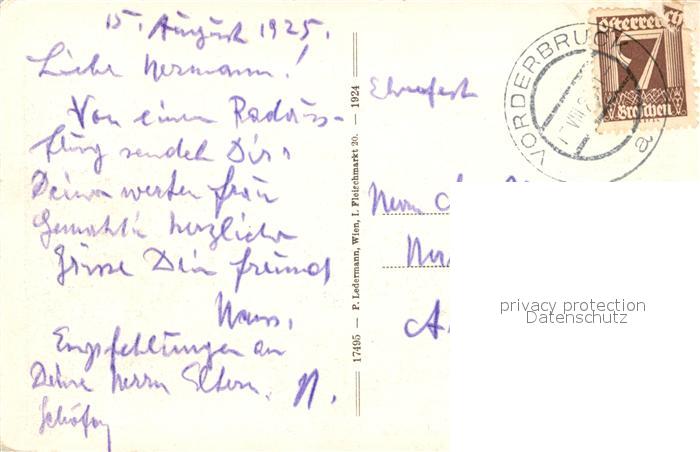 15. August 1925.
Liebe Hermann!
Von einem Radaus-
flug sendet Dir u
Deiner werten Frau
Gemahlin herzliche
Grüsse Dein Freund
Hans.
Empfehlungen an
Deine Herrn Eltern. N.
17495 — P. Ledermann, Wien, I. Fleischmarkt 20. — 1924
Herrn
VORDERBRUCK
a
Österreich
7
Groschen
privacy protection
Datenschutz